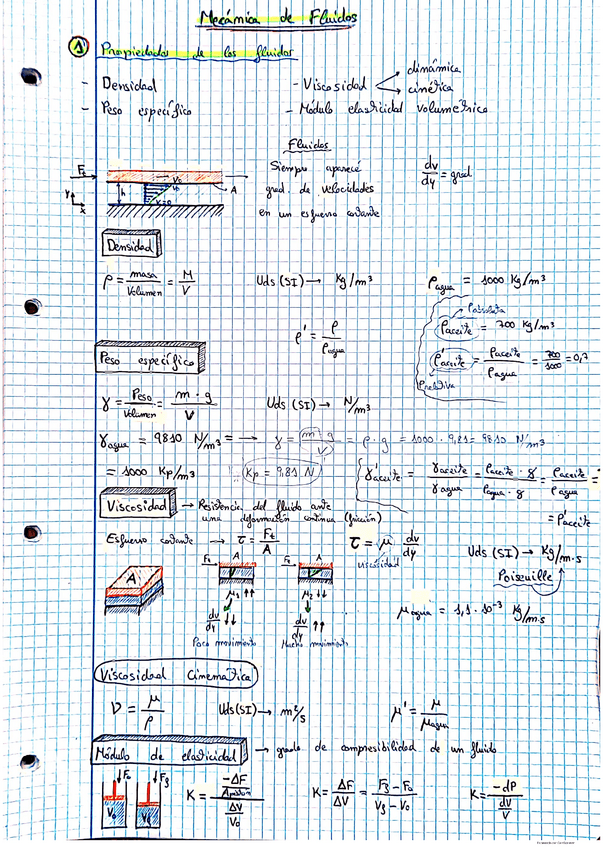 Mecánica de Fluidos
1) Propiedades de los fluidos
- Densidad
- Peso específico
- Viscosidad → dinámica
→ cinética
- Módulo elasticidad volumétrico
Fluidos
Siempre aparece
grad. de velocidades
en un esfuerzo cortante
dv/dy = grad
F₀ V₀ A h v=0 Y X
Densidad
ρ = masa/Volumen = M/V
Uds (SI) → Kg/m³
ρagua = 1000 Kg/m³
ρ absoluta
ρaceite = 700 Kg/m³
ρ' = ρ/ρagua
ρ'aceite = ρaceite/ρagua = 700/1000 = 0,7
ρ relativa
Peso específico
γ = Peso/Volumen = m · g/V
Uds (SI) → N/m³
γagua = 9810 N/m³ = → γ = m · g/V = ρ · g = 1000 · 9,81 = 9810 N/m³
= 1000 Kp/m³
Kp = 9,81 N
γ'aceite = γaceite/γagua = ρaceite · g/ρagua · g = ρaceite/ρagua =
= ρ'aceite
Viscosidad → Resistencia del fluido ante
una deformación continua (fricción)
Esfuerzo cortante → τ = Ft/A
τ = μ · dv/dy
viscosidad
Uds (SI) → Kg/m·s
Poiseuille
A
Ft A
Ft A
μ₁ ↑↑
μ₂ ↓↓
dv/dy ↓↓
dv/dy ↑↑
Poco movimiento
Mucho movimiento
μagua = 1,1 · 10⁻³ Kg/m·s
Viscosidad Cinemática
ν = μ/ρ
Uds (SI) → m²/s
μ' = μ/μagua
Módulo de elasticidad → grado de compresibilidad de un fluido
↓F₀ ↓Fg
V₀
K = (-ΔF/Apiston)/(ΔV/V₀)
K = ΔF/ΔV = Fg - F₀/Vg - V₀
K = -dP/(dV/V)